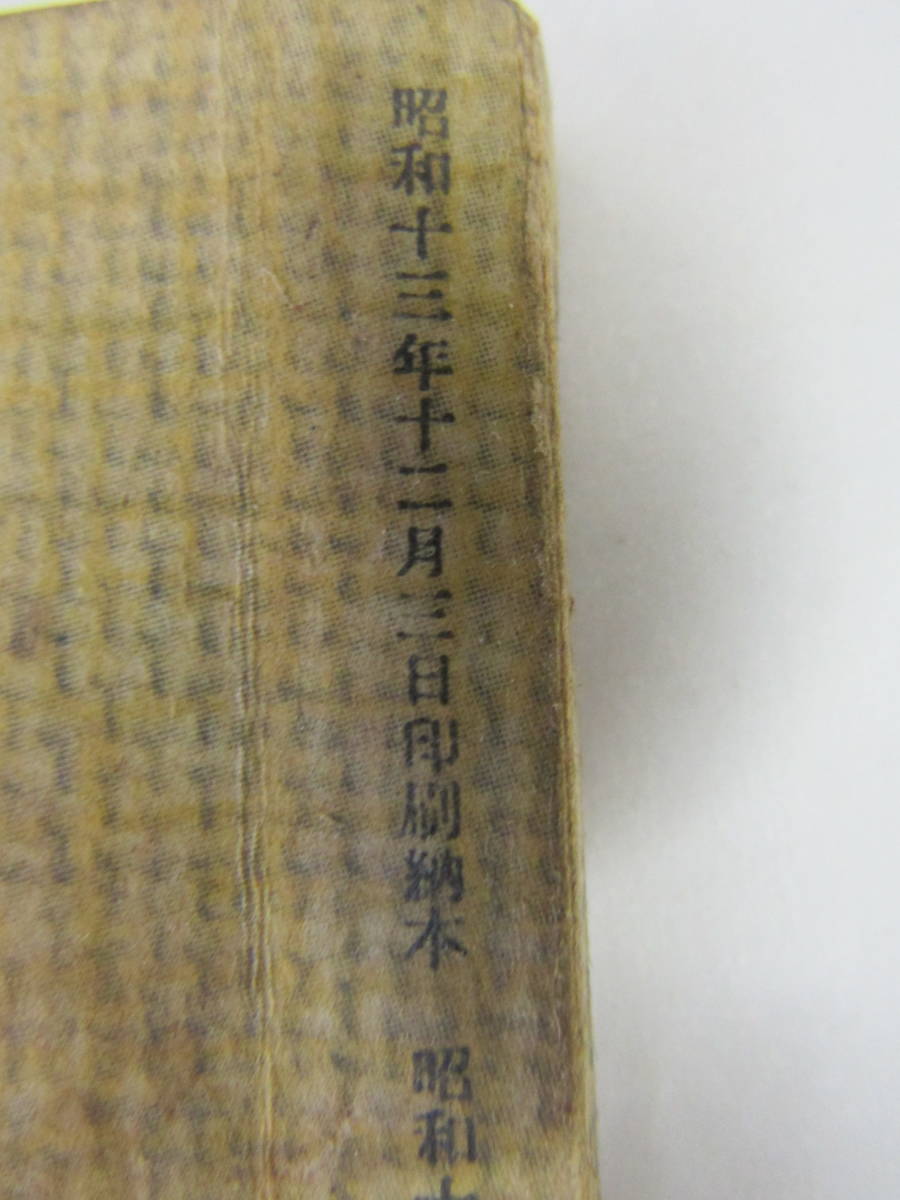 昭和十三年十二月三日印刷納本　昭和十